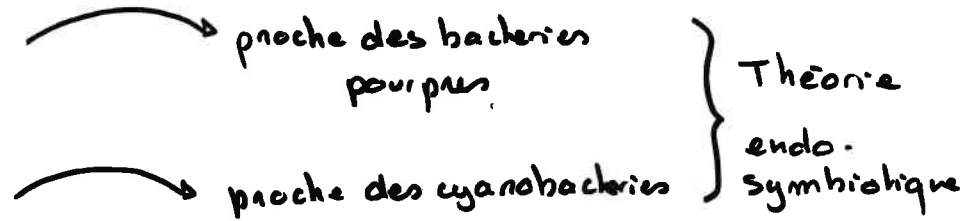 proche des bacteries
pourpres
proche des cyanobacteries
Théorie
endo-
symbiotique